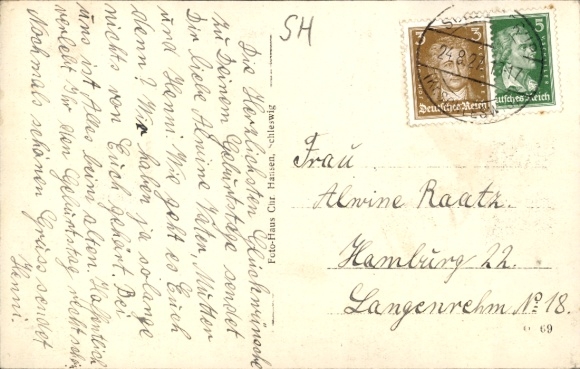 Die Herzlichsten Glückwünsche
zu Deinem Geburtstage sendet
Dir liebe Alwine Vater, Mutter
und Henni. Wie geht es Euch
denn? Wir haben ja solange
nichts von Euch gehört. Bei
uns ist Alles beim alten. Hofentlich
verlebt Ihr den Geburtstag recht schön
Nochmals schönen Gruss sendet
Henni.
SH
Foto-Haus Chr. Hansen, Schleswig
3
3
Deutsches Reich
5
Deutsches Reich
24.8.27
Frau
Alwine Raatz.
Hamburg 22.
Langenrehm No 18.
69